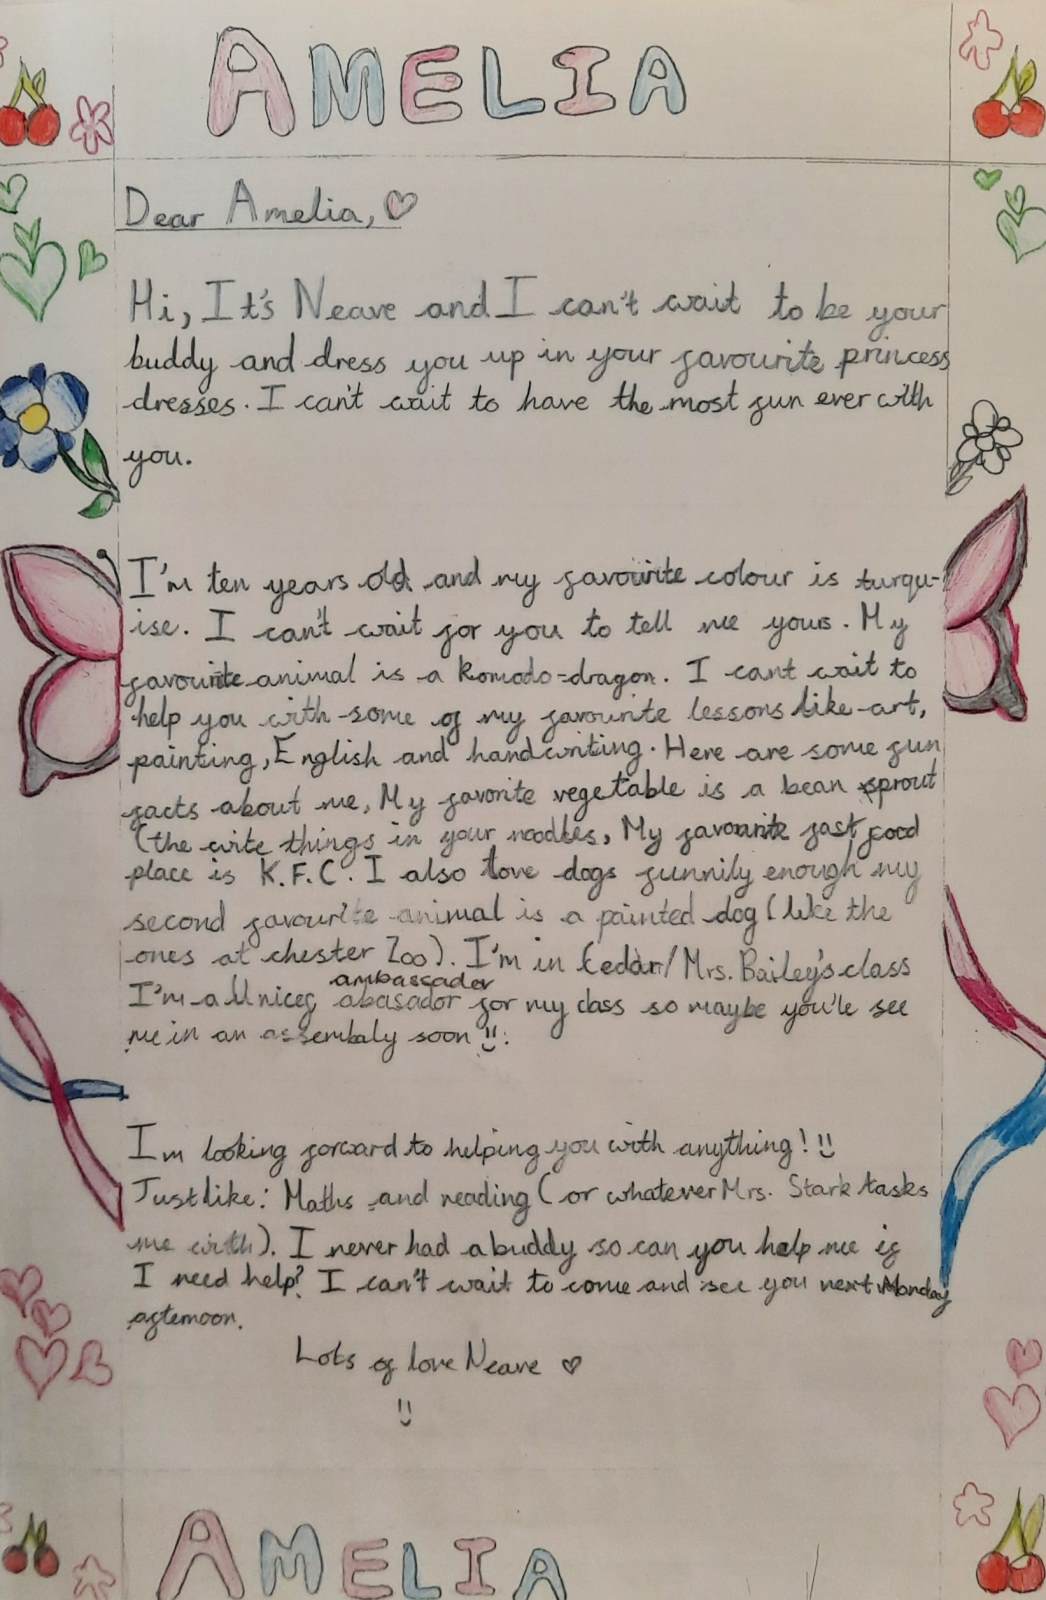 AMELIA
Dear Amelia,
Hi, It's Neave and I can't wait to be your
buddy and dress you up in your favourite princess
dresses. I can't wait to have the most fun ever with
you.
I'm ten years old and my favourite colour is turqu-
ise. I can't wait for you to tell me yours. My
favourite animal is a komodo-dragon. I cant wait to
help you with some of my favourite lessons like art,
painting, English and handwriting. Here are some fun
facts about me, My favorite vegetable is a bean sprout
(the wite things in your noodles, My favourite fast food
place is K.F.C. I also love dogs funnily enough my
second favourite animal is a painted dog (like the
ones at chester Zoo). I'm in Cedar/Mrs. Bailey's class
ambassador
I'm a Unicef abasador for my class so maybe you'le see
me in an assembaly soon
Im looking forward to helping you with anything!
Just like: Maths and reading (or whatever Mrs. Stark tasks
me with). I never had a buddy so can you help me if
I need help? I can't wait to come and see you next Monday
afternoon.
Lots of love Neave
AMELIA